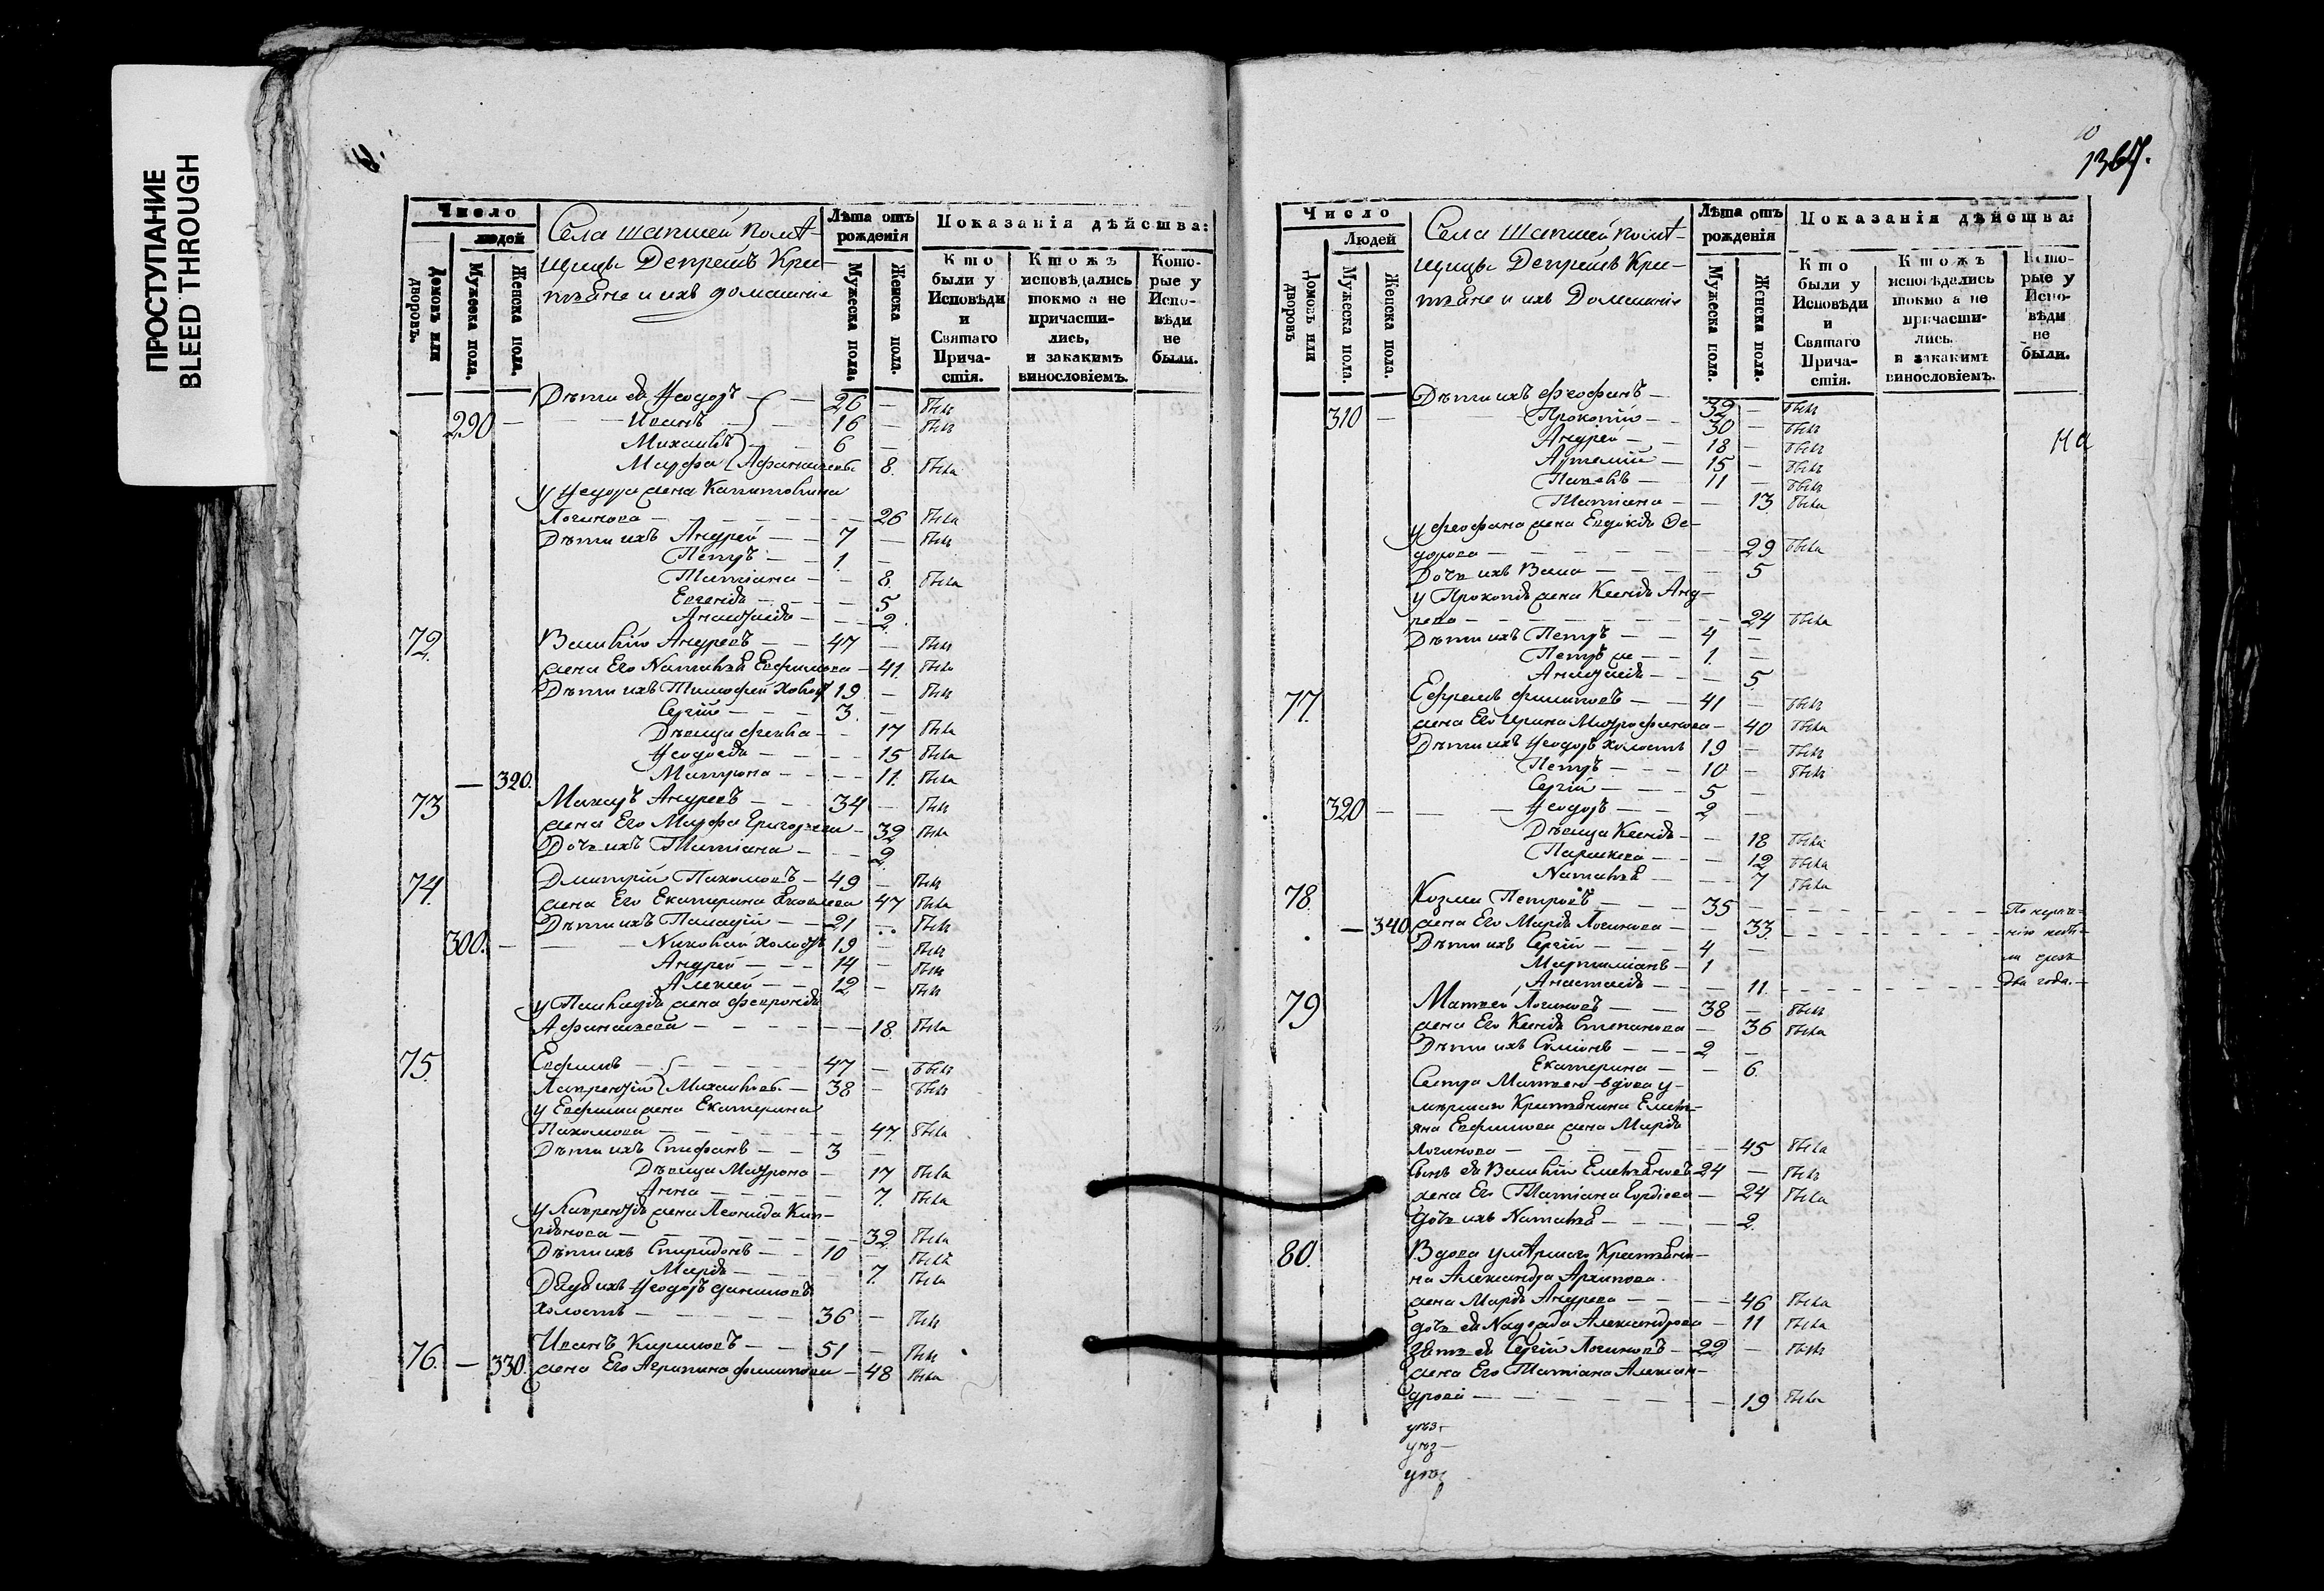 ПРОСТУПАНИЕ
BLEED THROUGH
Число
людей
Домовъ или дворовъ.
Мужеска пола.
Женска пола.
Села
Депрейсъ Кре-
стьяне и ихъ домашніе
Лѣта отъ рожденія
Мужеска пола.
Женска пола.
Показанія дѣйства:
Кто были у Исповѣди и Святаго Прича-стія.
Ктожъ исповѣдались токмо а не причасти-лись, и закакимъ винословіемъ.
Кото-рые у Испо-вѣди не были.
Дѣти ея Ѳеодоръ — 26 — былъ
290 — Иванъ — 16 — былъ
Михаилъ — 6 —
Марфа Афанасьевы 8. была
у Ѳеодора жена Капитолина
Логинова — 26 была
Дѣти ихъ Андрей — 7 — былъ
Петръ — 1. —
Татіана — 8. была
Евгенія — 5
Анастасія — 2.
72. Василій Андреевъ — 47 — былъ
жена Его Наталья Евфимова — 41. была
Дѣти ихъ Тимофей Холостъ 19 — былъ
Сергій — 3. —
Дѣвица Фекла — 17 была
Ѳеодосія — 15 была
— 320. Матрона — 11. была
73 Макаръ Андреевъ — 34 — былъ
жена Его Марфа Григорьева — 32 была
Дочь ихъ Татіана — 2
74. Дмитрій Пахомовъ — 49 — былъ
жена Его Екатерина Яковлева 47 была
Дѣти ихъ Палладій — 21 былъ
300. — Николай холостъ 19 — былъ
Андрей — 14 — былъ
Алексей — 12 — былъ
у Палладія жена Феврония
Афанасьева — 18. была
75. Евфимъ — 47 — былъ
Лаврентій Михайловы — 38 — былъ
у Евфима жена Екатерина
Пахомова — 47. была
Дѣти ихъ Стефанъ — 3 —
Дѣвица Матрона — 17 была
Анна — 7. была
у Лаврентія жена Леонида Кип-
ріянова — 32 была
Дѣти ихъ Спиридонъ — 10 — былъ
Марія — 7. была
Дядя ихъ Ѳеодоръ Даниловъ
Холостъ — 36 — былъ
76. — 330. Иванъ Кириловъ — 51 — былъ
жена Его Агрипина Филипова — 48 была
1367.
Число
Людей
Домовъ или дворовъ
Мужеска пола.
Женска пола.
Села
Депрейсъ Кре-
стьяне и ихъ Домашніе
Лѣта отъ рожденія
Мужеска пола.
Женска пола.
Показанія дѣйства:
Кто были у Исповѣди и Святаго Прича-стія.
Ктожъ исповѣдались токмо а не причасти-лись. и закакимъ винословіемъ.
Кото-рые у Испо-вѣди не были.
Дѣти ихъ Феофанъ — 32 — былъ
310 — Прокопій — 30 — былъ
Андрей — 18 — былъ
Артемій — 15 — былъ
Павелъ — 11 — былъ
Татіана — 13. была
у Феофана жена Евдокія Фе-
дорова — 29 была
Дочь ихъ Васса — 5
у Прокопія жена Ксенія Анд-
реева — 24 была
Дѣти ихъ Петръ — 4 —
Петръ же — 1. —
Анастасія — 5
77. Ефремъ Филиповъ — 41 — былъ
жена Его Ирина Митрофанова — 40 была
Дѣти ихъ Ѳеодоръ холостъ 19 — былъ
Петръ — 10 — былъ
Сергій — 5 —
320 — Ѳеодоръ — 2 —
Дѣвица Ксенія — 18 была
Параскева — 12 была
Наталья — 7 была
78. Козма Петровъ — 35 —
— 340. жена Его Марія Логинова — 33.
Дѣти ихъ Сергій — 4 —
Мартиміанъ — 1
Анастасія — 11.
два года.
79 Матвей Логиновъ — 38 — былъ
жена Его Ксенія Степанова — 36 была
Дѣти ихъ Симіонъ — 2 —
Екатерина — 6.
Сестра Матвею вдова у-
мершаго Крестьянина Емель-
яна Евфимова жена Марія
Логинова — 45 была
Сынъ ея Василій Емельяновъ 24 — былъ
жена Его Татіана Гордіева — 24 была
дочь ихъ Наталья — 2.
80. Вдова умѣршаго Крестьяни-
на Александра Архипова
жена Марія Андреева — 46 была
дочь ея Надежда Александрова — 11 была
зять ея Сергій Логиновъ — 22 — былъ
жена Его Татіана Алексан-
дрова — 19 была